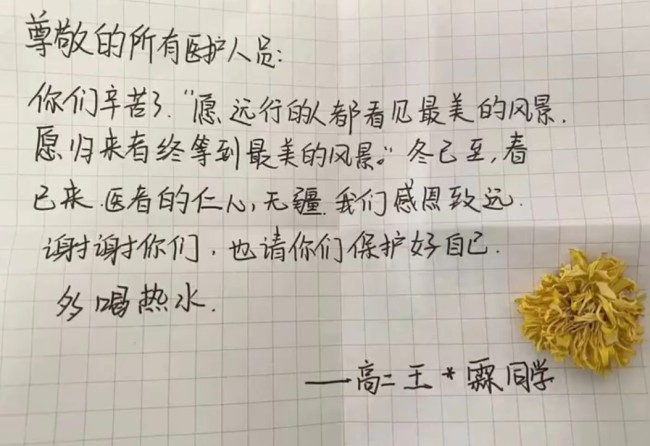 尊敬的所有医护人员:
你们辛苦了.“愿远行的人都看见最美的风景.
愿归来者终等到最美的风景。”冬已至,春
已来.医者的仁心,无疆.我们感恩致远.
谢谢你们,也请你们保护好自己.
多喝热水.
——高二王*霖同学